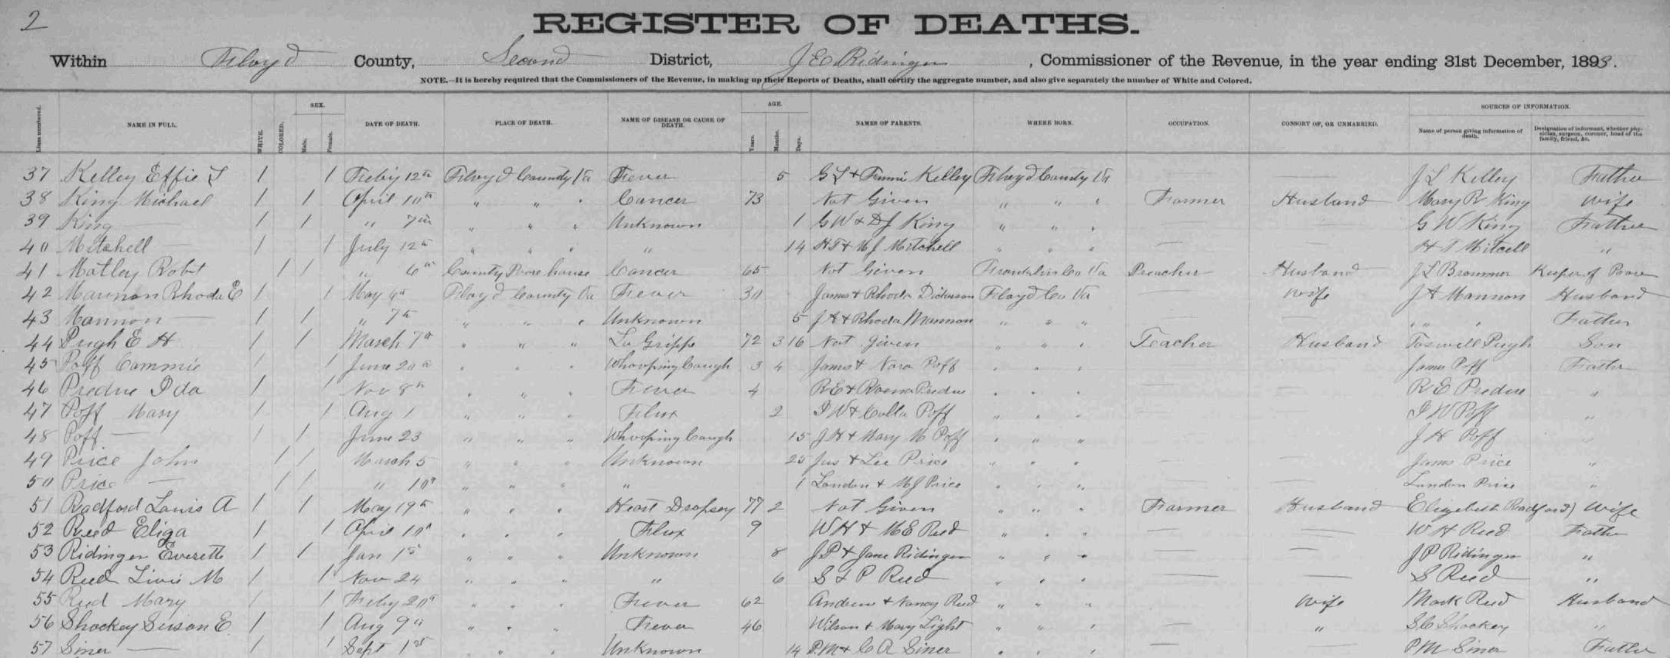 2
REGISTER OF DEATHS.
Within Floyd County, Second District, J E Ridinger, Commissioner of the Revenue, in the year ending 31st December, 1893.
NOTE.—It is hereby required that the Commissioners of the Revenue, in making up their Reports of Deaths, shall certify the aggregate number, and also give separately the number of White and Colored.
SEX. AGE. SOURCES OF INFORMATION.
NAME IN FULL. WHITE. COLORED. Male. Female. DATE OF DEATH. PLACE OF DEATH. NAME OF DISEASE OR CAUSE OF DEATH. Years. Months. Days. NAMES OF PARENTS. WHERE BORN. OCCUPATION. CONSORT OF, OR UNMARRIED. Name of person giving information of death. Designation of informant, whether physician, surgeon, coroner, head of the family, friend, &c.
37 Kelley Effie L 1 1 Feb'y 12th Floyd County Va Fever 5 G L & Kelley Floyd County Va — — J L Kelley Father
38 King Michael 1 1 April 10th " " " Cancer 73 Not Given " " " Farmer Husband Mary B King Wife
39 King — 1 1 " 7th " " " Unknown 1 G W & D J King " " " — — G W King Father
40 Mitchell — 1 1 July 12th " " " " 14 H T & M J Mitchell " " " — — H T Mitcell "
41 Motley Robt 1 1 " 6th County Poor house Cancer 65 Not Given Franklin Co Va Preacher Husband J L Brammer Keeper of Poor
42 Mannon Rhoda E 1 1 May 4th Floyd County Va Fever 30 James & Rhoda Dickerson Floyd Co Va — Wife J H Mannon Husband
43 Mannon — 1 1 " 7th " " " Unknown 5 J H & Rhoda Mannon " " " — — " " Father
44 Pugh E H 1 1 March 7th " " " La Gripp 72 3 16 Not given " " " Teacher Husband Pugh Son
45 Poff Cammie 1 1 June 20th " " " Whooping Cough 3 4 James & Nora Poff " " " — — James Poff Father
46 Perdue Ida 1 1 Nov 8th " " " Fever 4 R E & Perdue " " " — — R E Perdue "
47 Poff Mary 1 1 Aug 1 " " " Flux 2 I W & Colla Poff " " " — — I W Poff "
48 Poff — 1 1 June 23 " " " Whooping Cough 15 J H & Mary M Poff " " " — — J H Poff "
49 Price John 1 1 March 5 " " " Unknown 25 Jas & Lee Price " " " — — James Price "
50 Price — 1 1 " 10th " " " " 1 Landon & M J Price " " " — — Landon Price "
51 Radford Louis A 1 1 May 19th " " " Heart Dropsey 77 2 Not Given " " " Farmer Husband Elizebeth Radford Wife
52 Reed Eliga 1 1 April 10th " " " Flux 9 W H & M E Reed " " " — — W H Reed Father
53 Ridinger Everett 1 1 Jan 1st " " " Unknown 8 J P & Jane Ridinger " " " — — J P Ridinger "
54 Reed Livie M 1 1 Nov 24 " " " " 6 S & P Reed " " " — — S Reed "
55 Reed Mary 1 1 Feby 20th " " " Fever 62 Andrew & Nancy Reed " " " — Wife Mark Reed Husband
56 Shockey Susan E 1 1 Aug 9th " " " Fever 46 Wilson & Mary Light " " " — " S C Shockey "
57 Siner — 1 1 Sept 1st " " " Unknown 14 P M & C A Siner " " " — — P M Siner Father